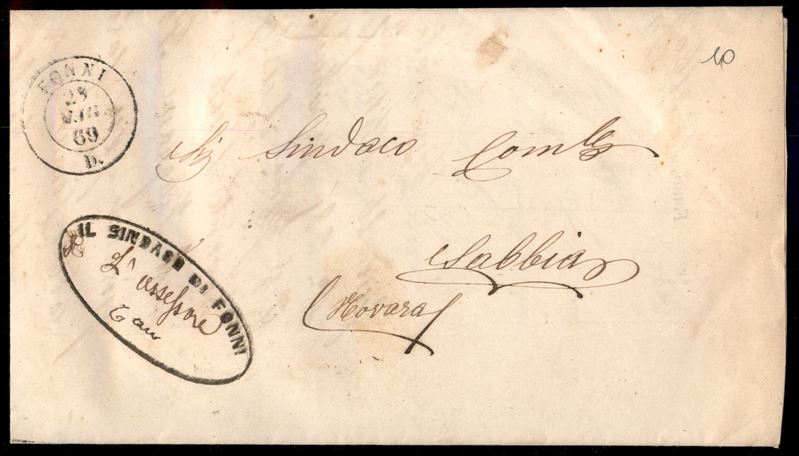 FONNI
28
69
D.
Sig Sindaco Com le
Sabbia
(Novara)
IL SINDACO DI FONNI
L'assessore